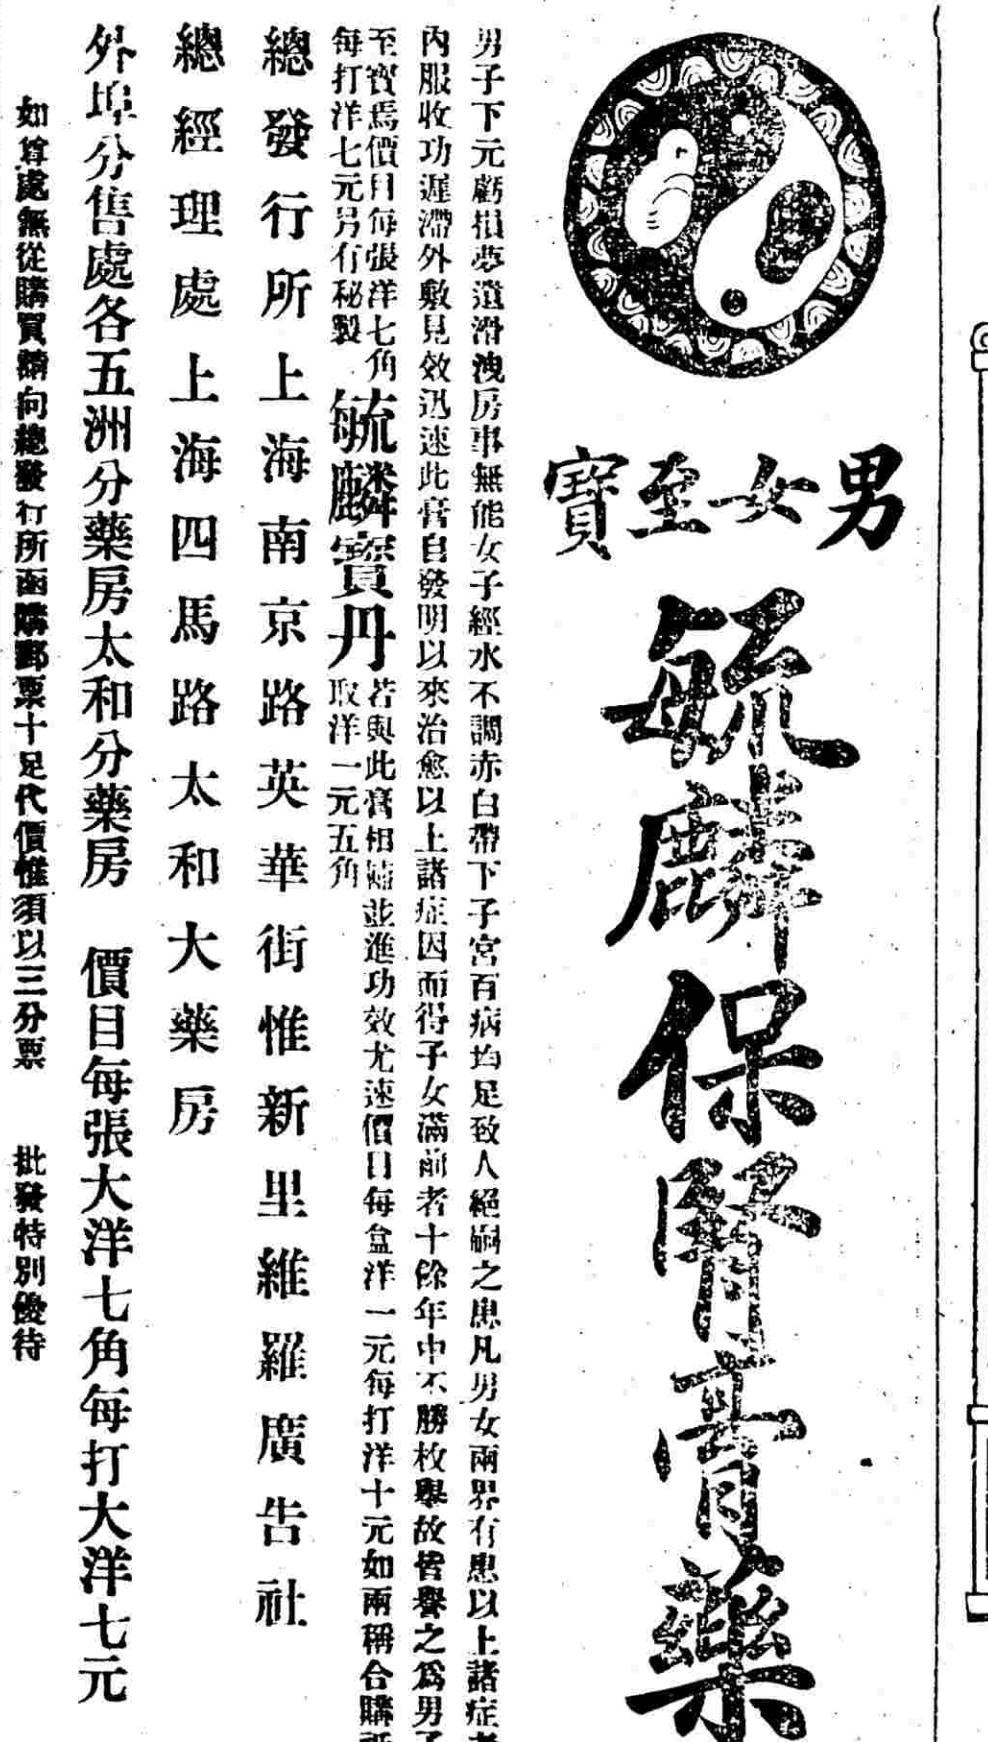 男女至寶
毓麟保腎膏藥
男子下元虧損夢遺滑洩房事無能女子經水不調赤白帶下子宮百病均足致人絕嗣之患凡男女兩界有患以上諸症者
內服收功遲滯外敷見效迅速此膏自發明以來治愈以上諸症因而得子女滿前者十餘年中不勝枚舉故皆譽之為男子
至寶焉價目每張洋七角
每打洋七元另有秘製
毓麟寶丹
若與此膏相輔並進功效尤速價目每盒洋一元每打洋十元如兩種合購祇
取洋一元五角
總發行所上海南京路英華街惟新里維羅廣告社
總經理處上海四馬路太和大藥房
外埠分售處各五洲分藥房太和分藥房 價目每張大洋七角每打大洋七元
如尊處無從購買請向總發行所函購郵票十足代價惟須以三分票 批發特別優待